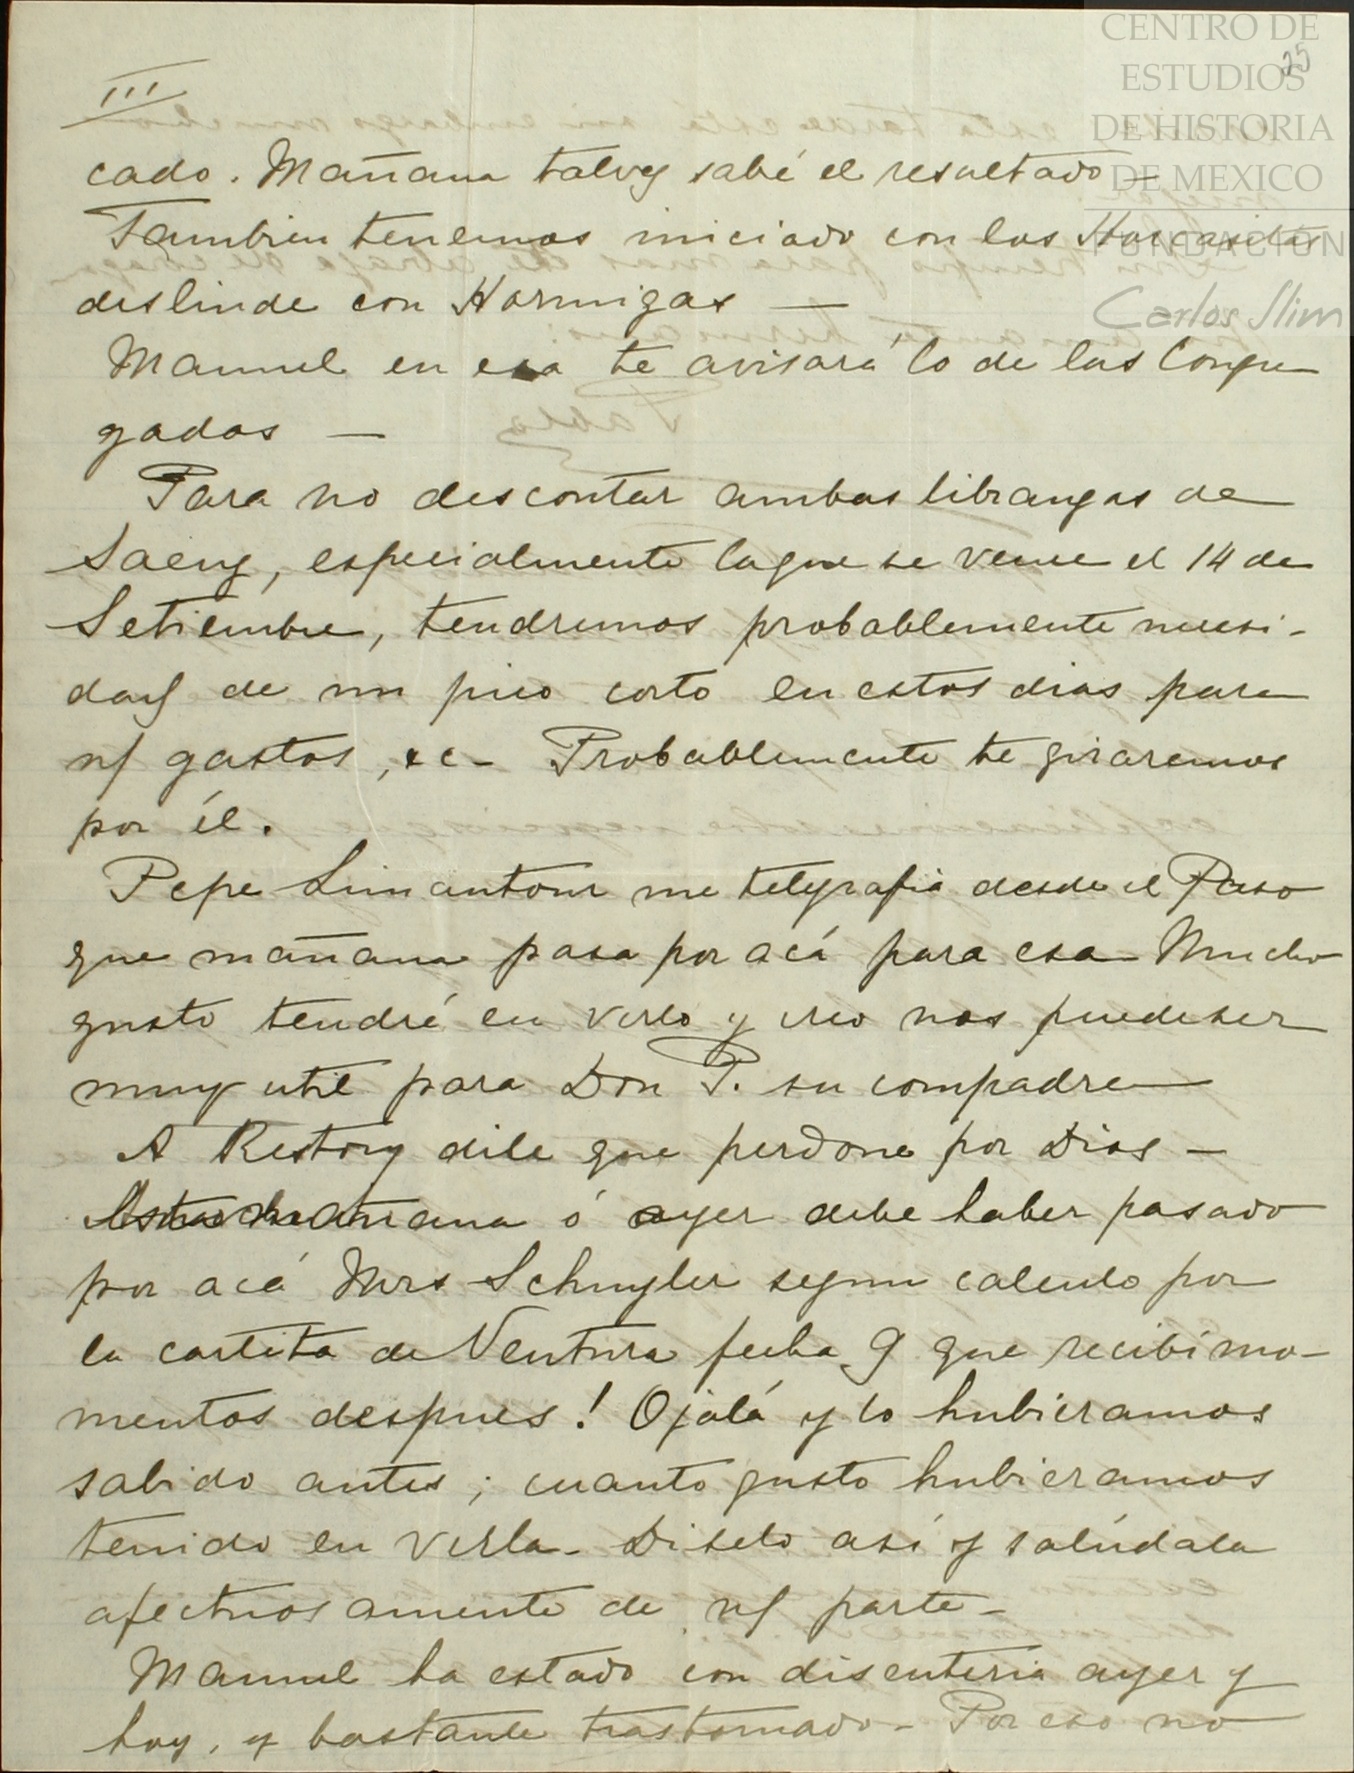 CENTRO DE
ESTUDIOS
DE HISTORIA
DE MEXICO
FUNDACIÓN
Carlos Slim
25
III
cado. Mañana talvez sabré el resultado —
Tambien tenemos iniciado con los Horcasitas
deslinde con Hormigas —
Manuel en esa te avisará lo de las Congre
gados —
Para no descontar ambas libranzas de
Saenz, especialmente la que se vence el 14 de
Setiembre, tendremos probablemente necesi-
dad de un pico corto en estos dias para
n/ gastos, &c – Probablemente te giraremos
por él.
Pepe Limantour me telegrafia desde el Paso
que mañana pasa por acá para esa – Mucho
gusto tendré en verlo y creo nos puede ser
muy util para Don P. su compadre —
A Restory dile que perdone por Dios –
mañana ó ayer debe haber pasado
por acá Mrs Schuyler segun calculo por
la cartita de Ventura fecha 9 que recibí mo-
mentos despues! Ojalá y lo hubieramos
sabido antes; cuanto gusto hubieramos
tenido en verla – Diselo así y salúdala
afectuosamente de n/ parte –
Manuel ha estado con disenteria ayer y
hoy, y bastante trastornado – Por eso no